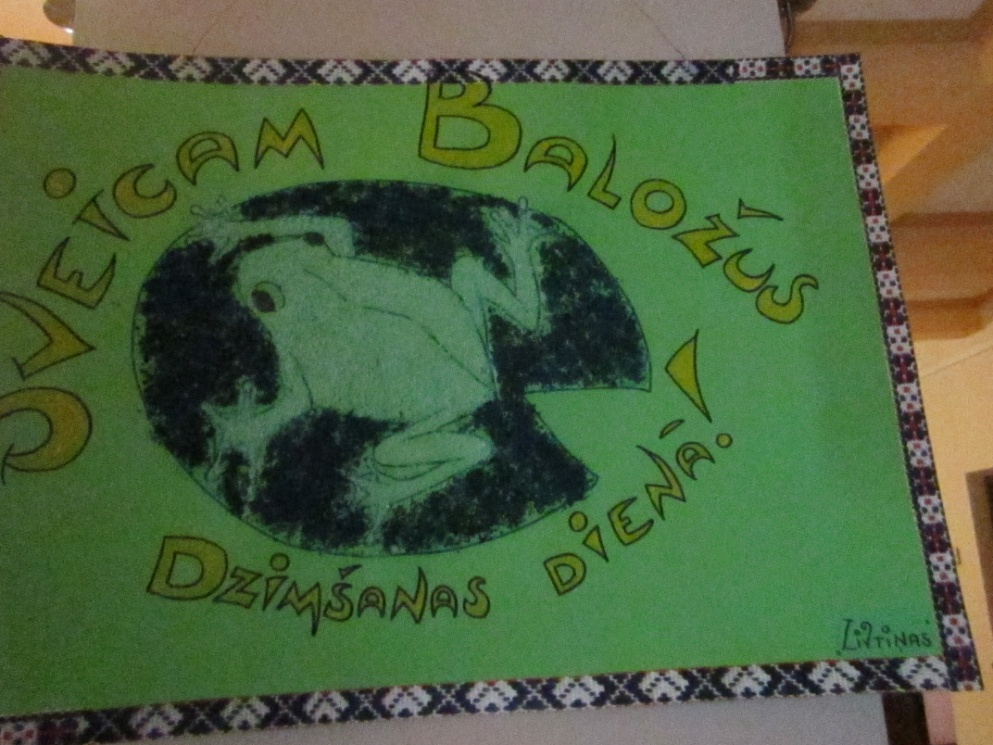 Sveicam Baložus
Dzimšanas dienā!
"Līvtiņas"